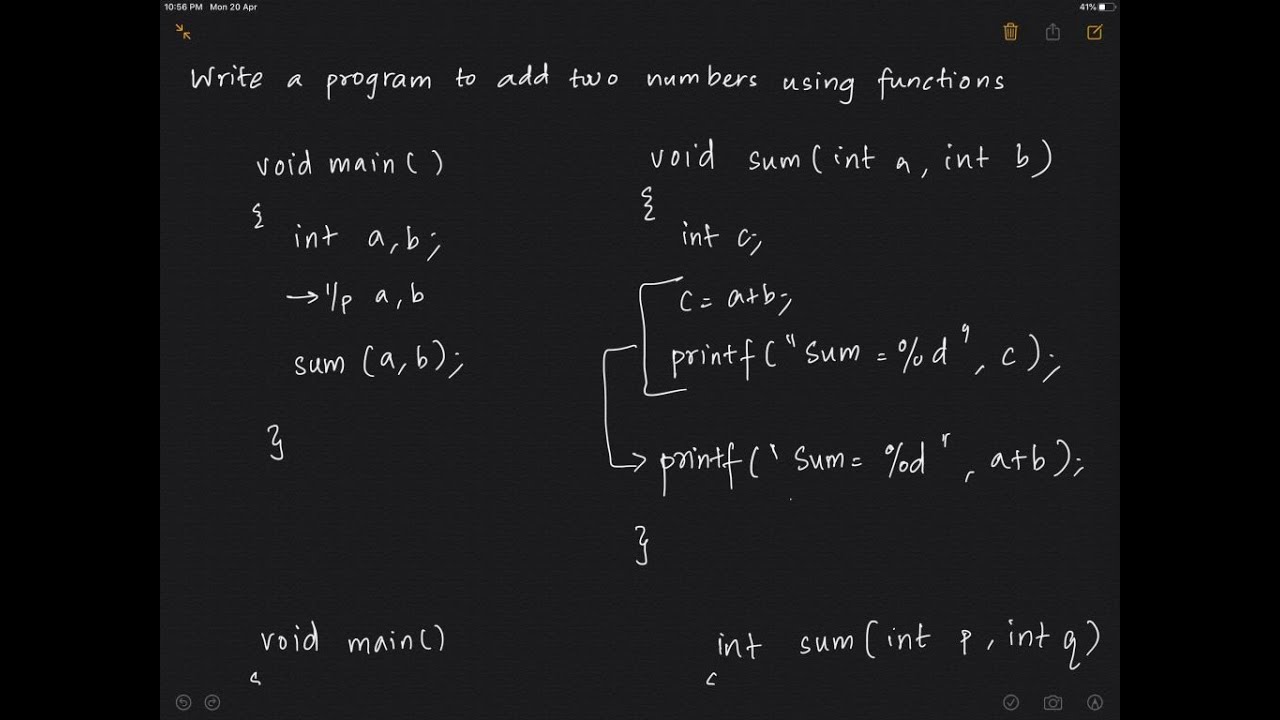 10:56 PM Mon 20 Apr
41%
Write a program to add two numbers using functions
void main()
{
int a,b;
→ i/p a,b
sum (a,b);
}
void sum(int a, int b)
{
int c;
c = a+b;
printf("Sum = %d", c);
→ printf("Sum = %d", a+b);
}
void main()
{
int sum(int p, int q)
{